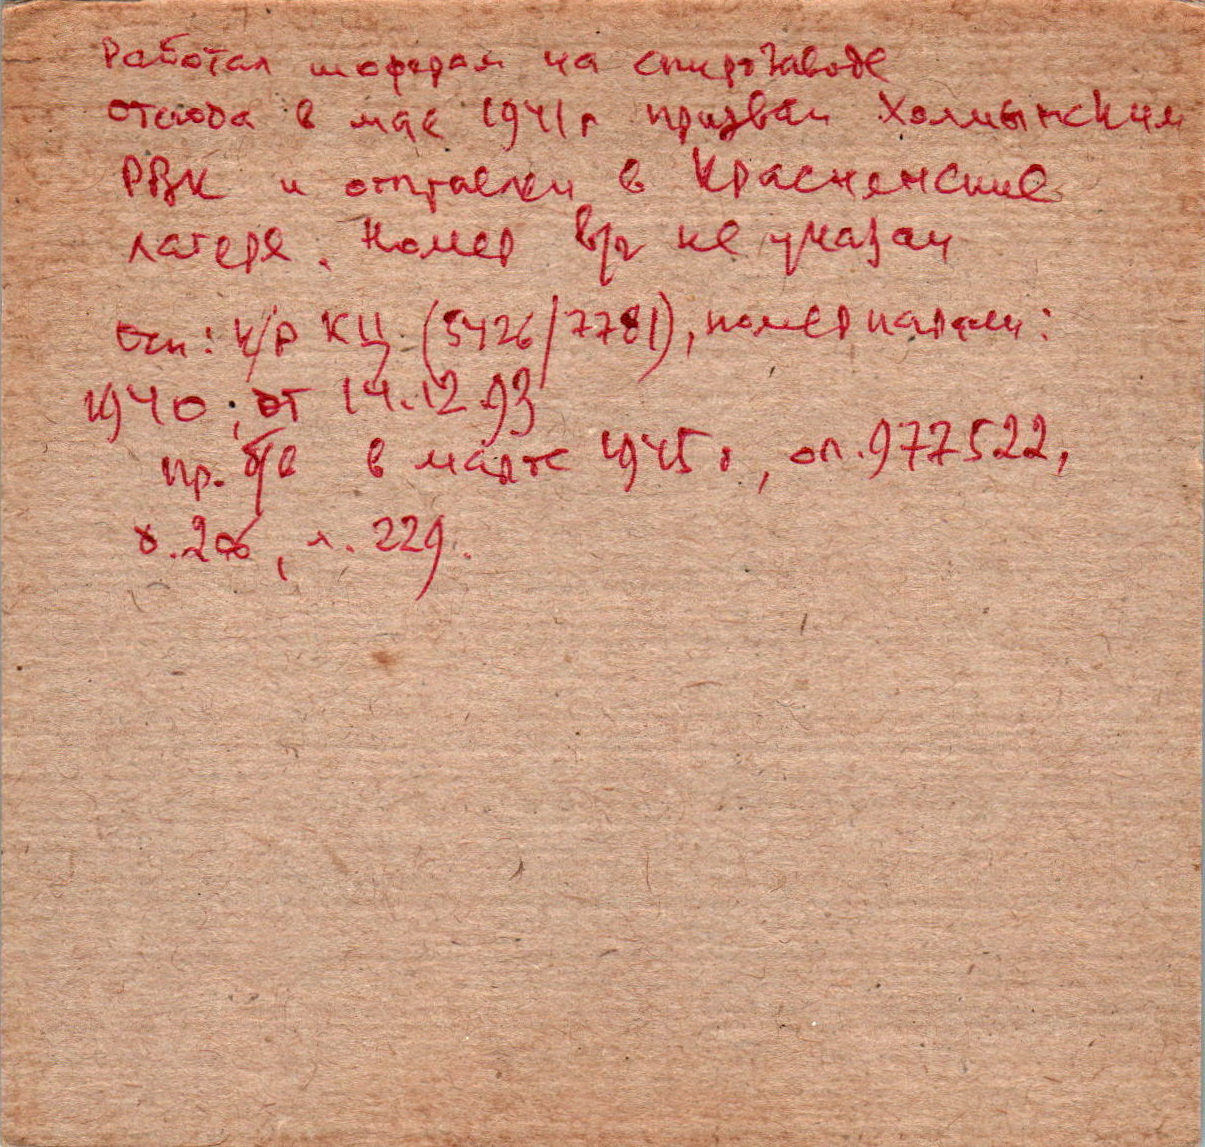 Работал шофером на спиртзаводе
отсюда в мае 1941 г призван Холмынским
РВК и отправлен в Красненские
лагеря. Номер в/ч не указан
Осн: к/р КЦ (5426/7781), номер
1940; от 14.12.93
пр. б/в в марте 1945 г, оп. 977522,
л. 229.